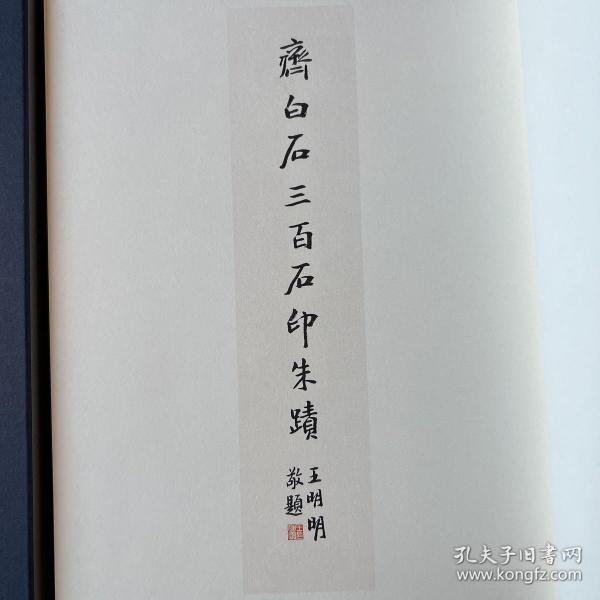 齊白石三百石印朱蹟
王明明
敬題
孔夫子旧书网
www.kongfz.com